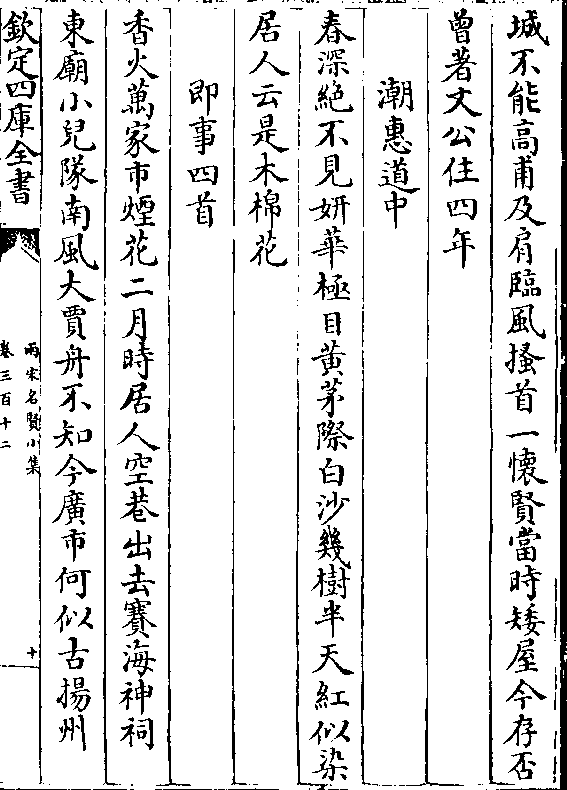 城不能高甫及肩臨風搔首一懷賢當時矮屋今存否
曾著文公住四年
潮惠道中
春深絕不見妍華極目黃茅際白沙幾樹半天紅似染
居人云是木棉花
即事四首
香火萬家市煙花二月時居人空巷出去賽海神祠
東廟小兒隊南風大賈舟不知今廣市何似古揚州
欽定四庫全書
兩宋名賢小集
卷三百十二
十